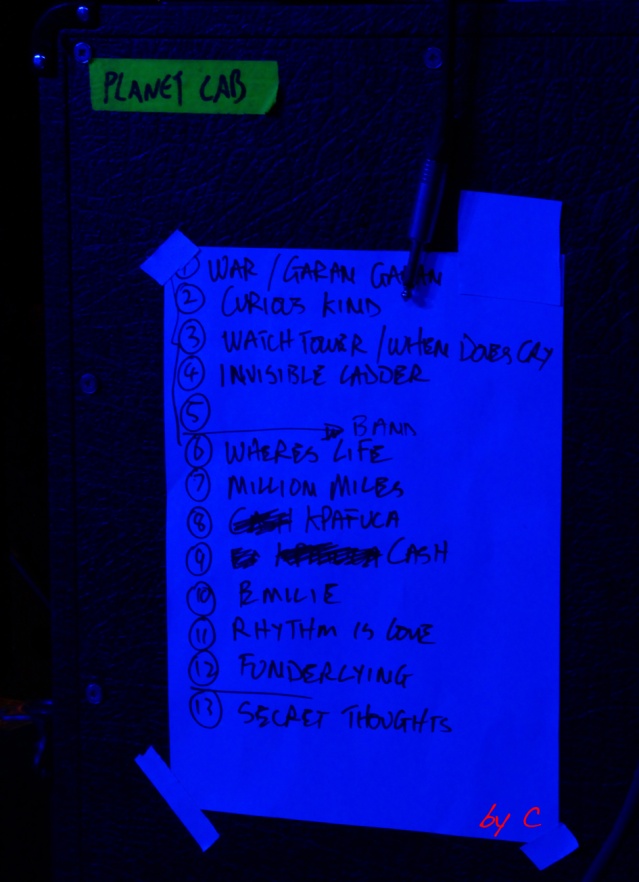 PLANET CAB
① WAR / GARAN GARAN
② CURIOUS KIND
③ WATCHTOWER / WHEN DOES CRY
④ INVISIBLE LADDER
⑤
→ BAND
⑥ WHERES LIFE
⑦ MILLION MILES
⑧ KPAFUCA
⑨ CASH
⑩ EMILIE
⑪ RHYTHM IS LOVE
⑫ FUNDERLYING
⑬ SECRET THOUGHTS
by C